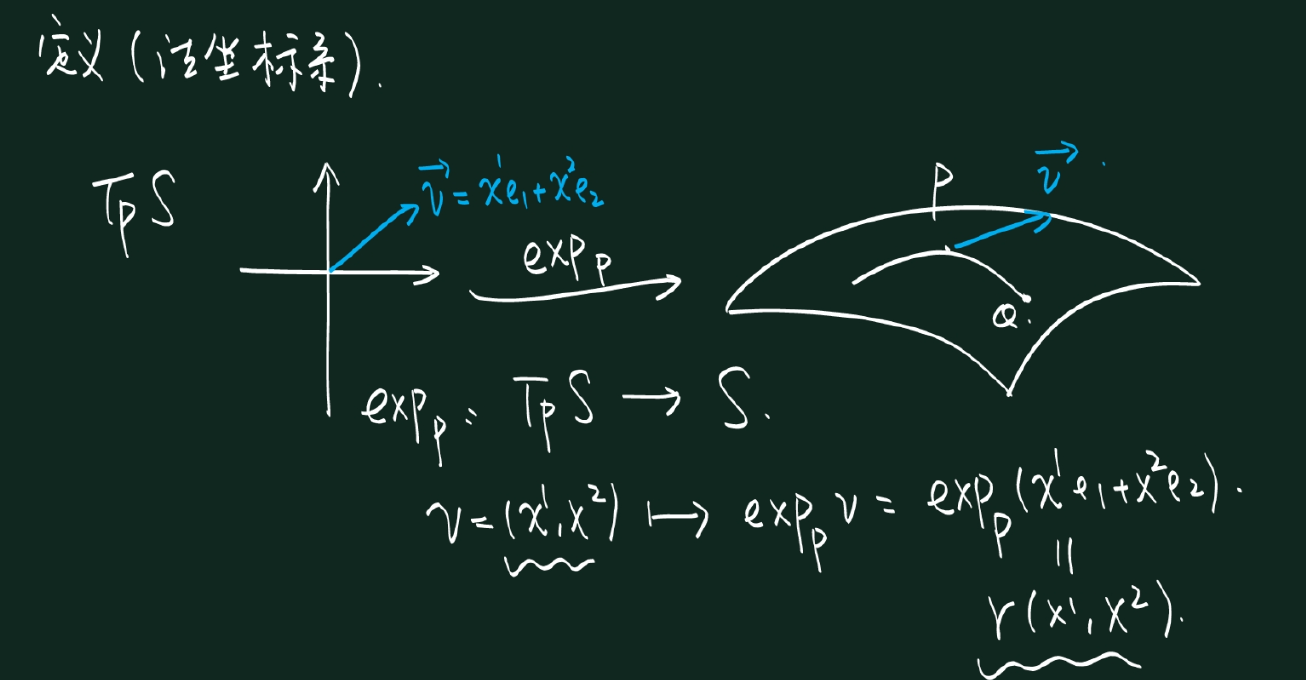 定义(法坐标系).
TpS
v⃗ = x¹e₁+x²e₂
exp_p
P
v⃗
Q.
exp_p: TpS → S.
v=(x¹,x²) ↦ exp_p v = exp_p(x¹e₁+x²e₂).
||
r(x¹,x²).